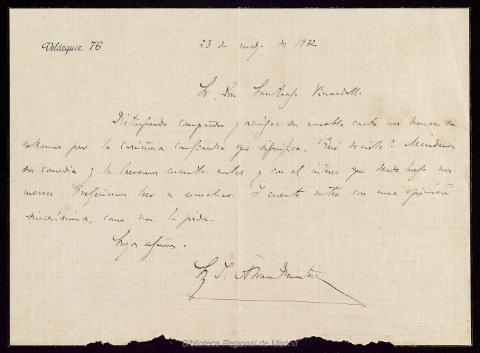 Velázquez, 76
23 de mayo de 1932
Sr. Don Santiago Vinardell.
Distinguido compañero y amigo: su amable carta nos honra en
extremo por la cariñosa confianza que significa. ¿Qué decirle? Mándenos
su comedia y la leeremos cuanto antes y con el interés que desde luego nos
merece. Preferimos leer a escuchar. Y cuente usted con una opinión
sincerísima, como nos la pide.
Suyos afmos.
S. y J. Álvarez Quintero
Biblioteca Regional de Madrid